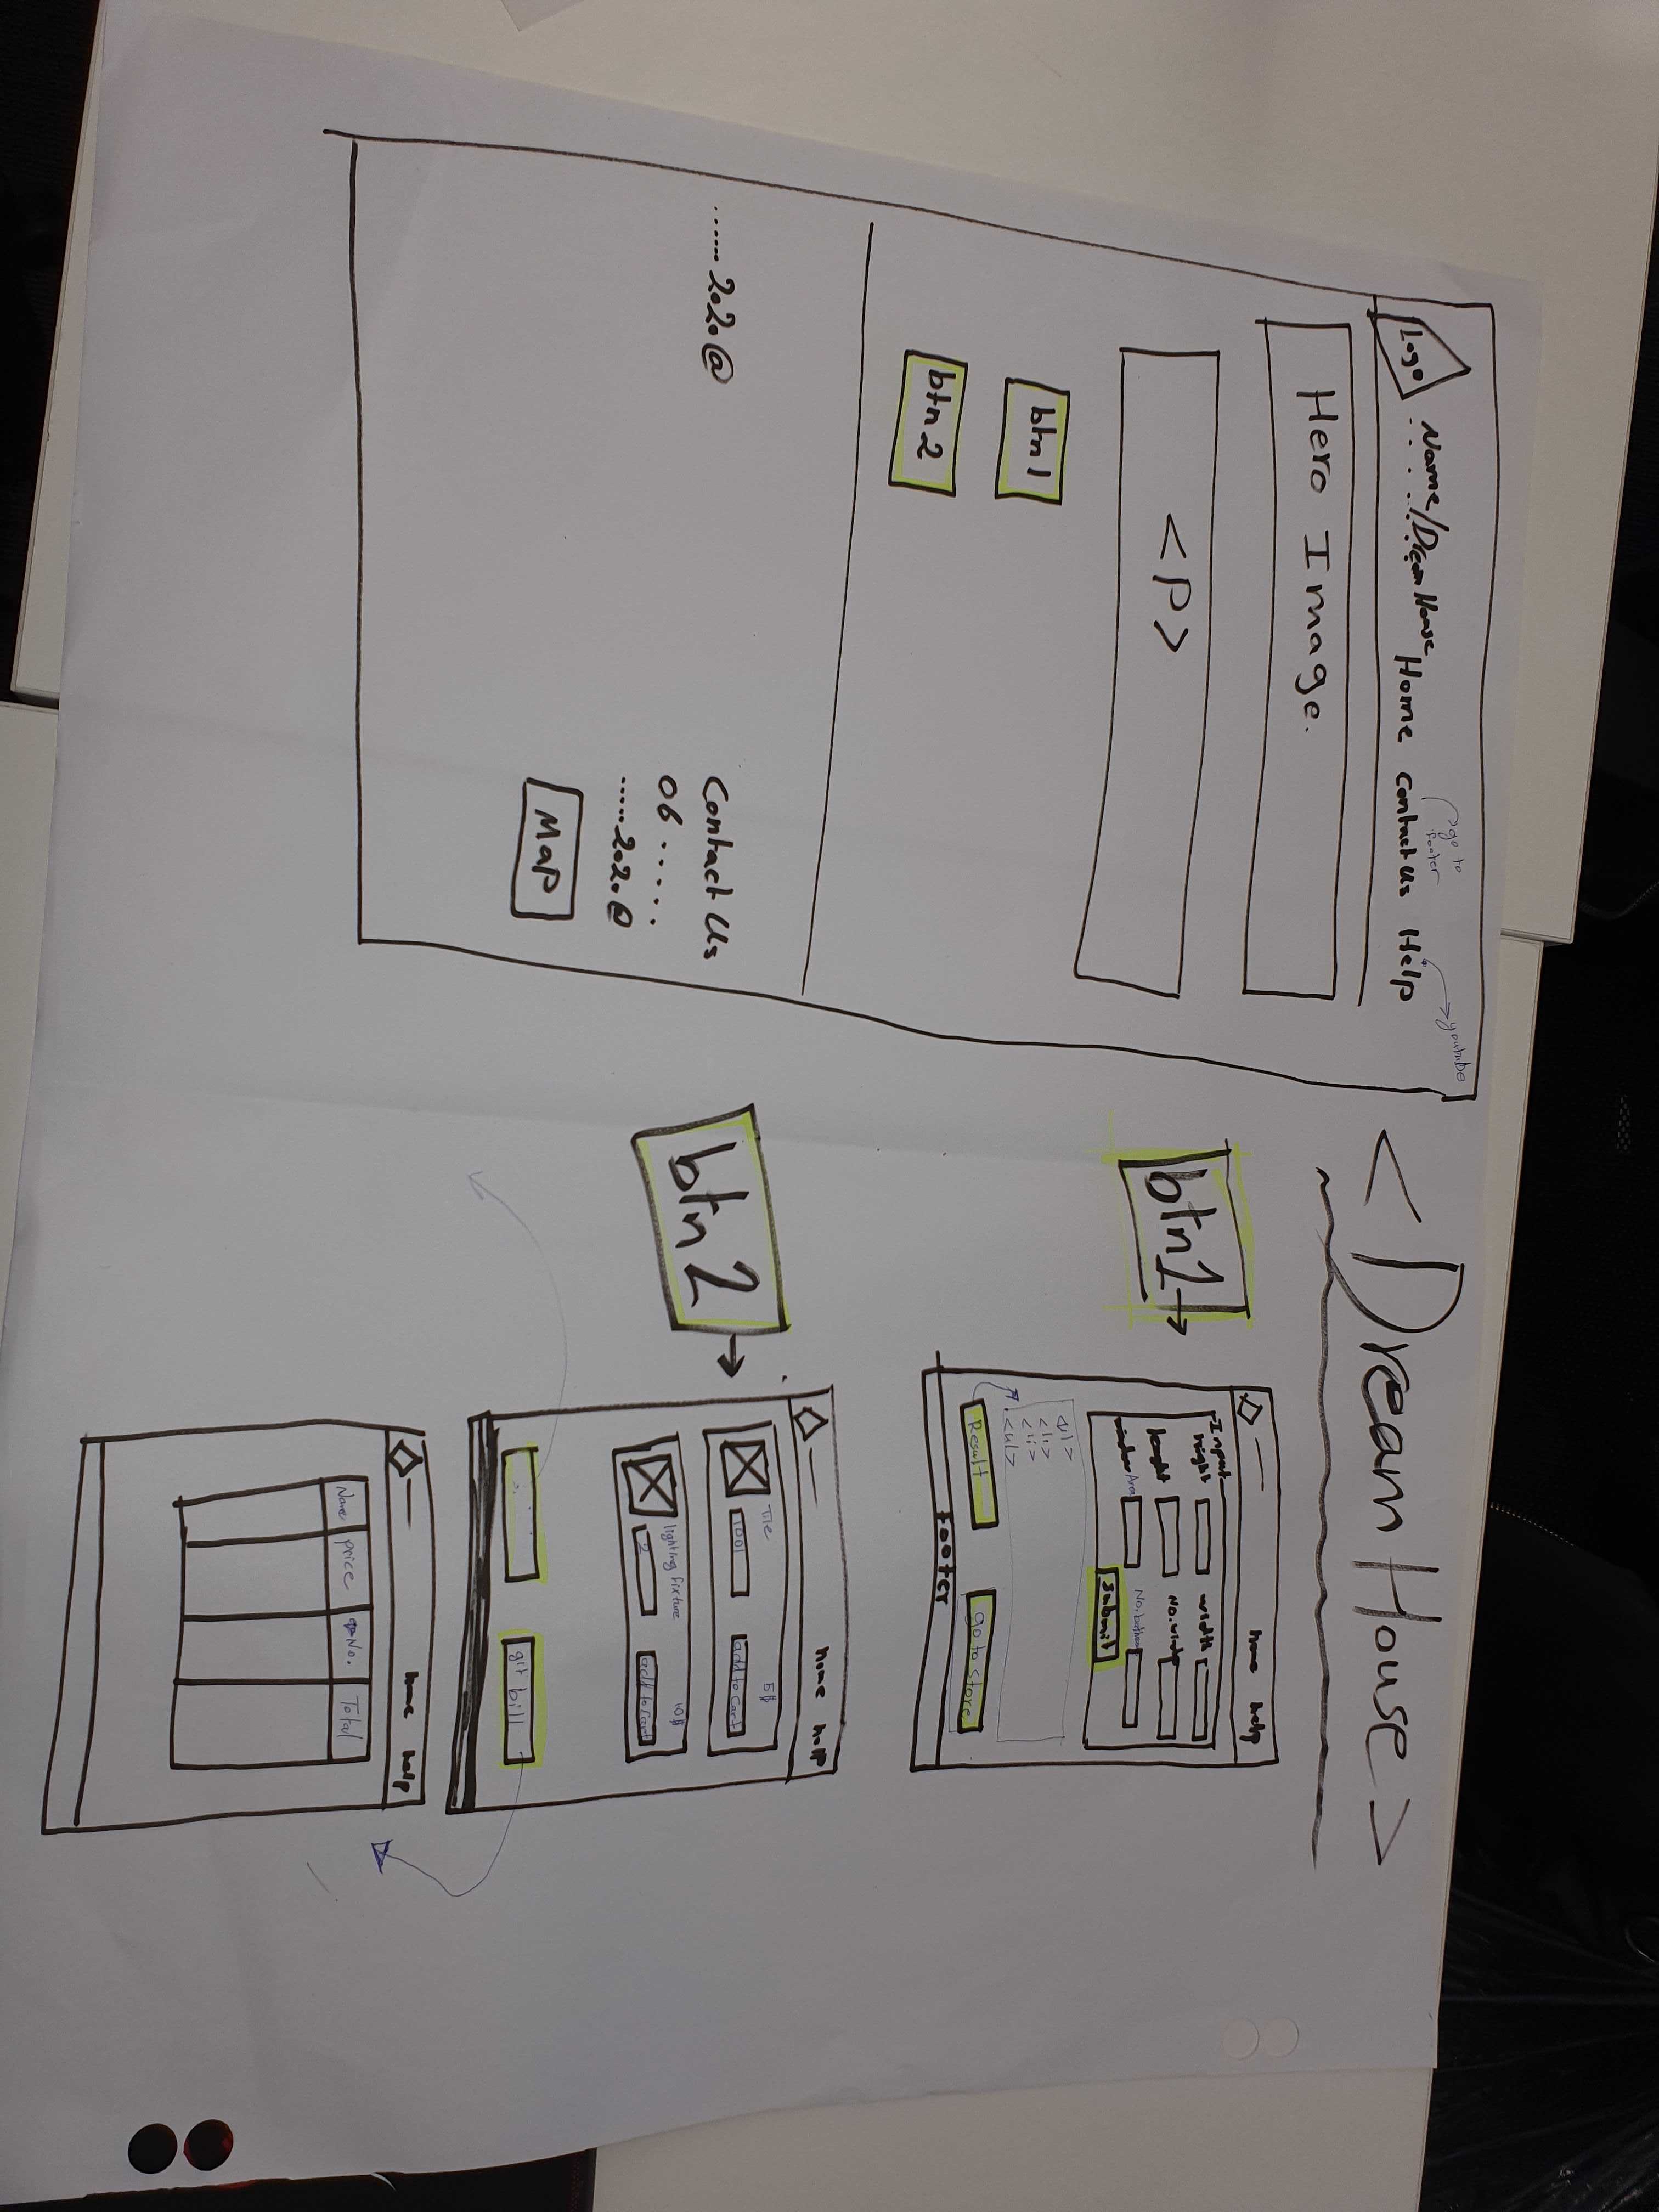 <Dream House>
Logo
Name/Dream House Home contact us Help
go to
footer
youtube
Hero Image.
<P>
btn1
btn2
......2020@
Contact Us
06 ......
......2020@
Map
btn1
home help
Input
hight
width
lenght
No.wind
window Area
Submit
<ul>
<li>
<ul>
Result
go to store
footer
btn2
home help
Tile
5$
1001
add to Cart
lighting fixture
10$
2
add to Cart
git bill
home help
Name
price
No.
Total